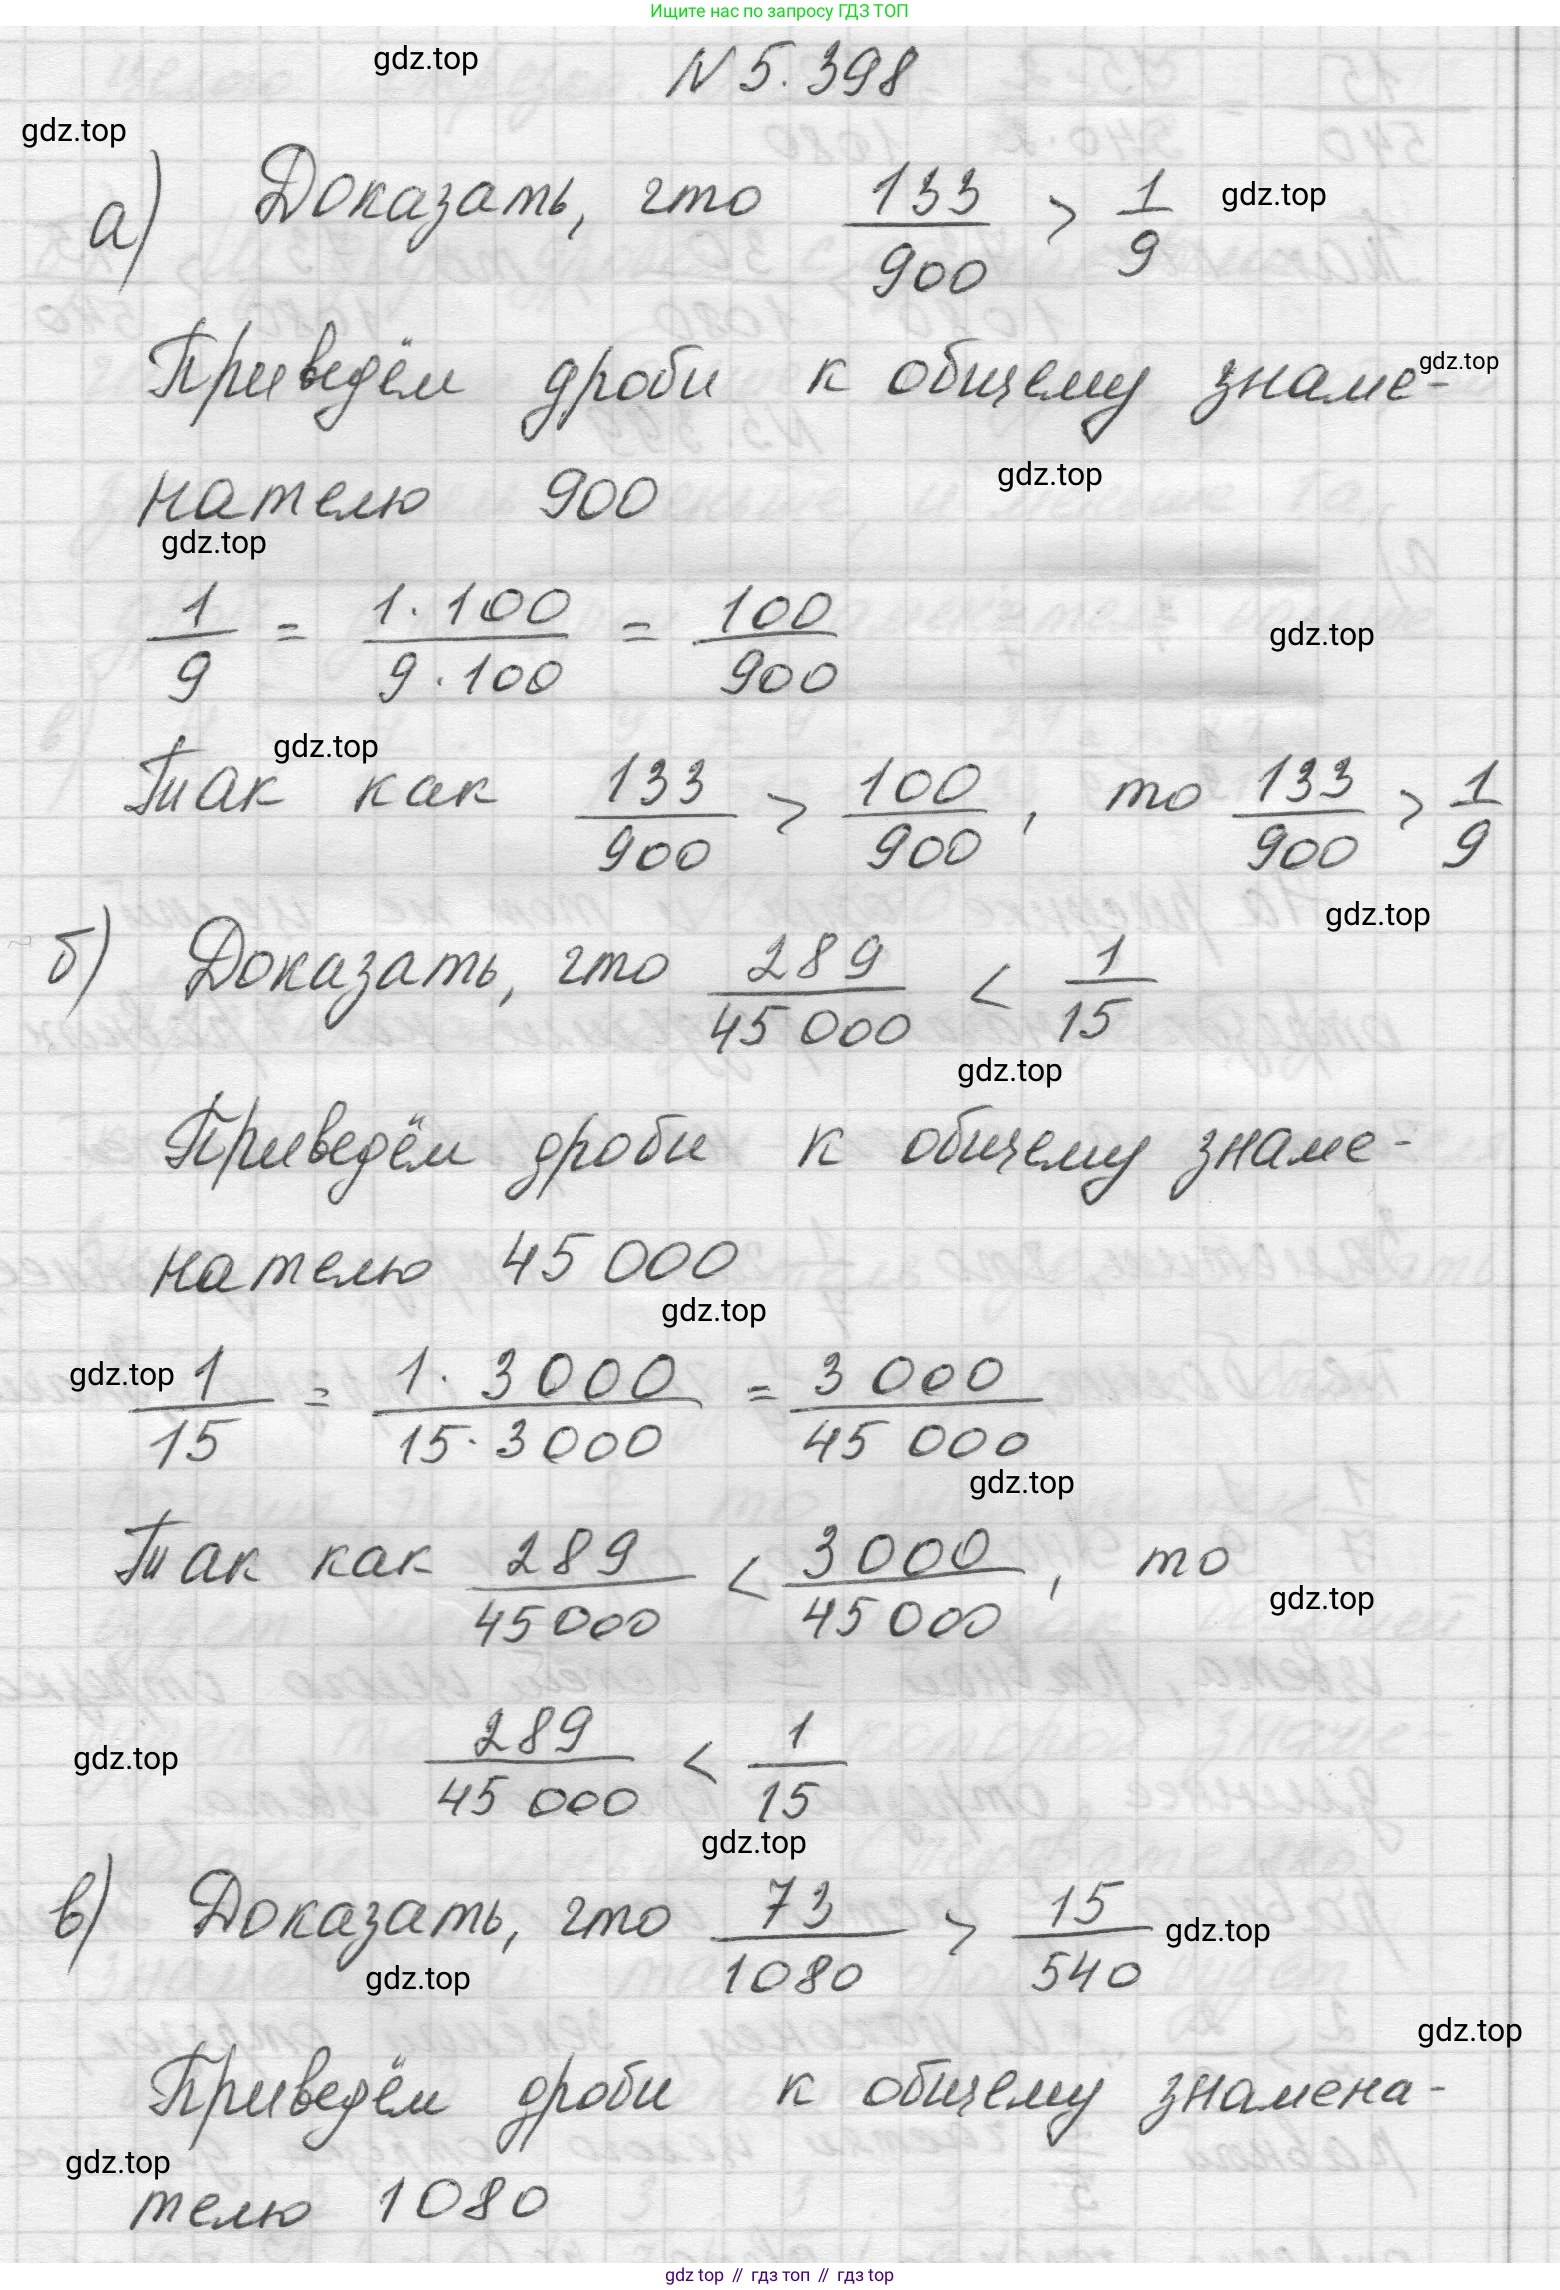 Ищите нас по запросу ГДЗ ТОП
gdz.top
N 5.398
gdz.top
а) Доказать, что 133/900 > 1/9 gdz.top
Приведём дроби к общему знаме- gdz.top
нателю 900 gdz.top
gdz.top
1/9 = 1·100/9·100 = 100/900 gdz.top
gdz.top
Так как 133/900 > 100/900, то 133/900 > 1/9
gdz.top
б) Доказать, что 289/45 000 < 1/15
gdz.top
Приведём дроби к общему знаме-
нателю 45 000
gdz.top
gdz.top 1/15 = 1·3000/15·3000 = 3 000/45 000
gdz.top
Так как 289/45 000 < 3000/45 000, то
gdz.top
gdz.top 289/45 000 < 1/15
gdz.top
в) Доказать, что 73/1080 > 15/540 gdz.top
gdz.top
gdz.top
Приведём дроби к общему знамена-
gdz.top
телю 1080
gdz top // гдз топ // гдз top